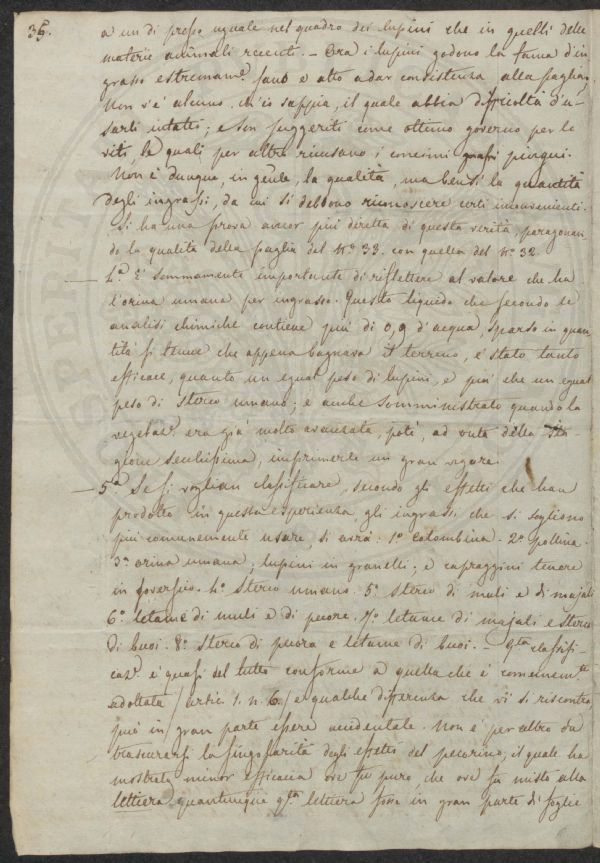 36.
a un di presso uguale nel quadro dei lupini che in quelli delle
materie animali recenti. – Ora i lupini godono la fama d'in
grasso estremam.e sano e atto a dar consistenza alla paglia,
Non v'è alcuno, ch'io sappia, il quale abbia difficoltà d'u-
sarli intatti; e son suggeriti come ottimo governo per le
viti, le quali per altro ricusano i concimi grassi pingui.
Non è dunque, in gen.le, la qualità, ma bensì la quantità
degli ingrassi, da cui si debbono riconoscere certi inconvenienti.
Si ha una prova ancor più diretta di questa verità, paragonan
do la qualità della paglia del N.o 33. con quella del N.o 32.
4.o È sommamente importante di riflettere al valore che ha
l'orina umana per ingrasso. Questo liquido che secondo le
analisi chimiche contiene più di 0,9 d'acqua, sparso in quan
tità sì tenue che appena bagnava il terreno, è stato tanto
efficace, quanto un egual peso di lupini, e più che un egual
peso di sterco umano; e anche somministrato quando la
vegetaz.e era già molto avanzata, potè, ad onta della sta
gione secchissima, imprimerle un gran vigore.
5.o Se si voglian classificare, secondo gli effetti che han
prodotto in questa esperienza gli ingrassi che si sogliono
più comunemente usare, si avrà: 1.o colombina. 2.o pollina.
3.o orina umana, lupini in granelli, e capraggini tenere
in soverscio. 4.o Sterco umano. 5.o Sterco di muli e di majali
6.o letame di muli e di pecore. 7.o letame di majali e sterco
di buoi. 8.o Sterco di pecora e letame di buoi. – q.ta classifi-
caz.e è quasi del tutto conforme a quella che è comunem.te
adottata (artic. 1. n. 6.) e qualche differenza che vi si riscontra
può in gran parte essere accidentale. Non è per altro da
trascurarsi la singolarità degli effetti del pecorino, il quale ha
mostrato minor efficacia ove fu puro, che ove fu misto alla
lettiera, quantunque q.ta lettiera fosse in gran parte di foglie